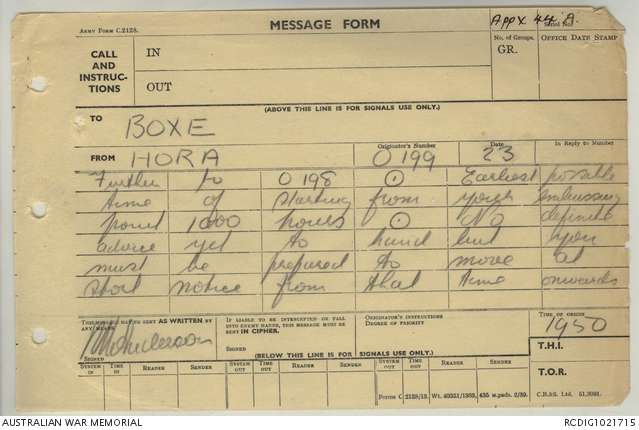 ARMY FORM C.2128.
MESSAGE FORM
Appx 44 A.
Serial No.
CALL
AND
INSTRUC-
TIONS
IN
OUT
No. of Groups.
GR.
OFFICE DATE STAMP
(ABOVE THIS LINE IS FOR SIGNALS USE ONLY.)
TO BOXE
FROM HORA
Originator's Number 0199
Date 23
In Reply to Number
Further to 0198 ⊙ Earliest possible
time of starting from your embussing
point 1000 hours ⊙ No definite
advice yet to hand but you
must be prepared to move at
short notice from that time onwards
THIS MESSAGE MAY BE SENT AS WRITTEN BY
ANY MEANS.
SIGNED
IF LIABLE TO BE INTERCEPTED OR FALL
INTO ENEMY HANDS, THIS MESSAGE MUST BE
SENT IN CIPHER.
SIGNED
ORIGINATOR'S INSTRUCTIONS
DEGREE OF PRIORITY
TIME OF ORIGIN
1950
T.H.I.
T.O.R.
(BELOW THIS LINE IS FOR SIGNALS USE ONLY.)
SYSTEM IN TIME IN READER SENDER SYSTEM OUT TIME OUT READER SENDER SYSTEM OUT TIME OUT READER SENDER
AUSTRALIAN WAR MEMORIAL
RCDIG1021715